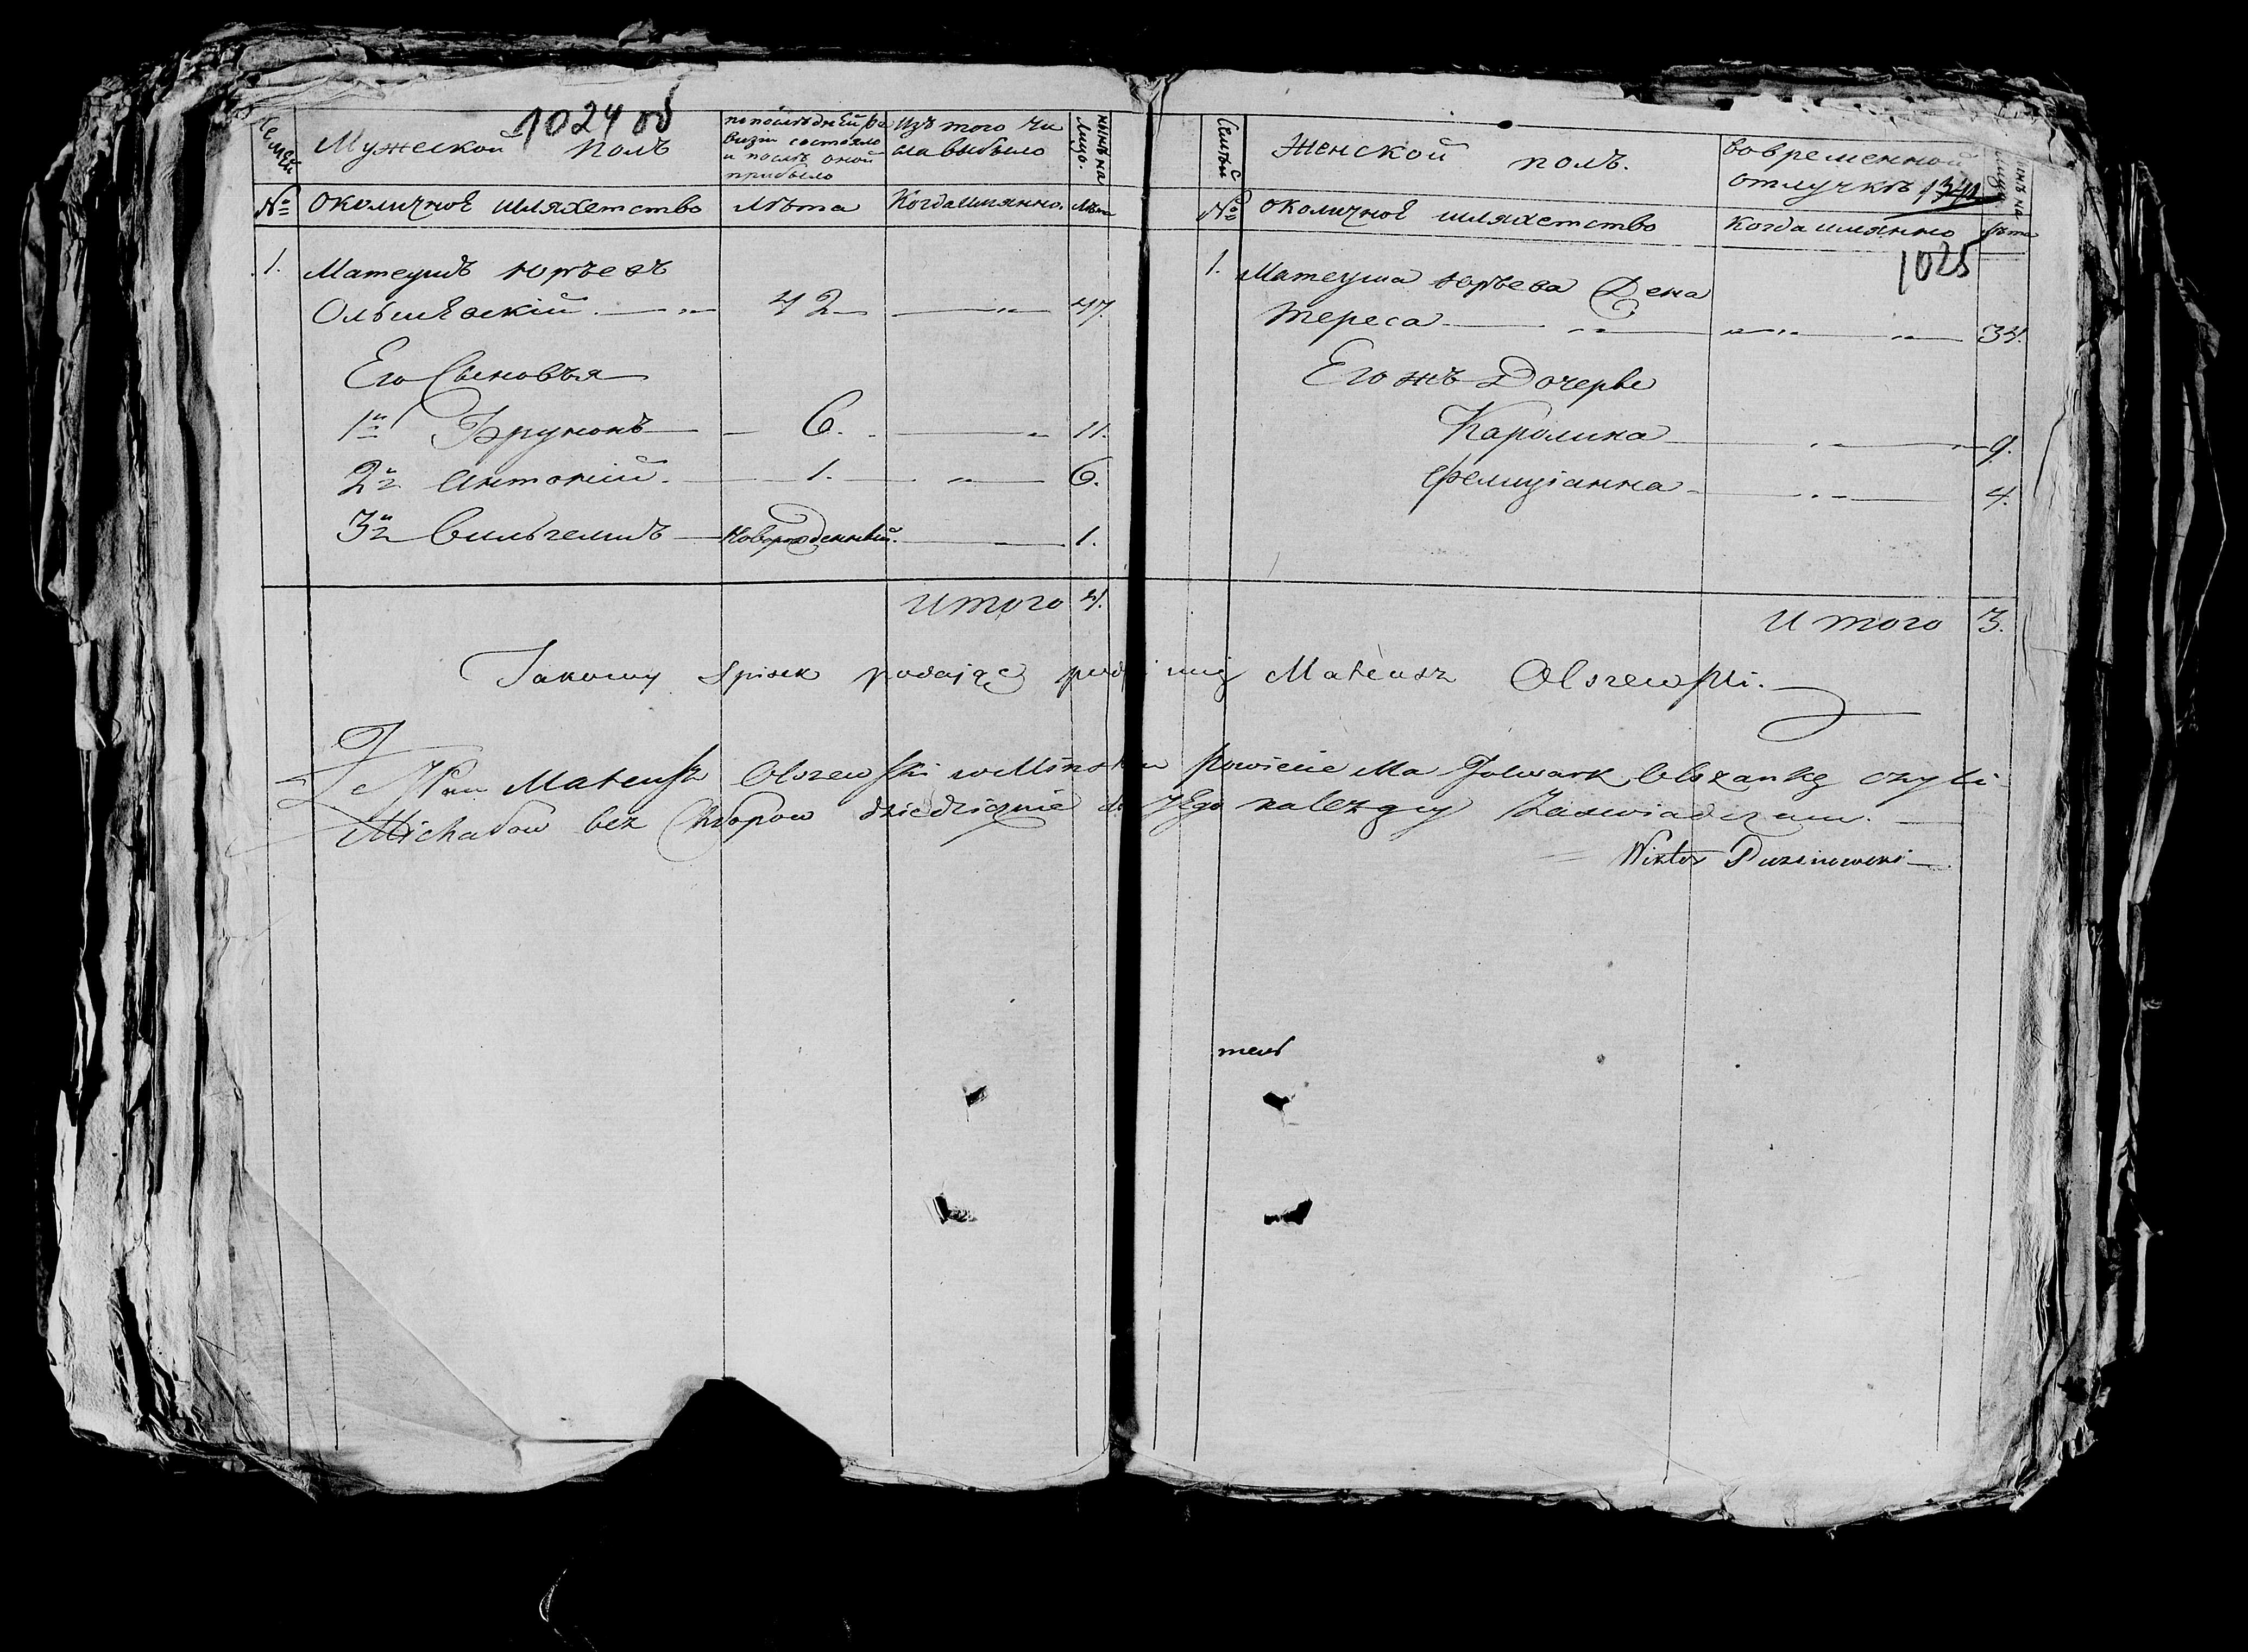 1024 об
Семей
Мужеской полъ
по послѣдней ре
визіи состояло
и послѣ оной
прибыло
Изъ того чи
сла выбыло
нынѣ на
лицо.
№
Околичное шляхетство
лѣта
Когда имянно.
лѣта
1.
Матеушъ Юрьевъ
Ольшевскій
42
47.
Его Сыновья
1й Брунонъ
6.
11.
2й Антоній.
1.
6.
3й Вильгелмъ
Новорожденный.
1.
Итого 4.
Семьи
Женской полъ.
во временной
отлучкѣ
1025
№
околичное шляхетство
Когда имянно
лѣта
1.
Матеуша Юрьева Жена
Тереса
34.
Его жъ Дочери
Каролина
9.
Фелиціанна
4.
Итого 3.
Takowy Spisek podaiąc Mateusz Olszewski.
Mateusz Olszewski w Mińskim Powiecie Ma Folwark Olszankę czyli
Michałow bez Chłopow dziedzicznie do Jego należący Zaswiadczam.
Wiktor